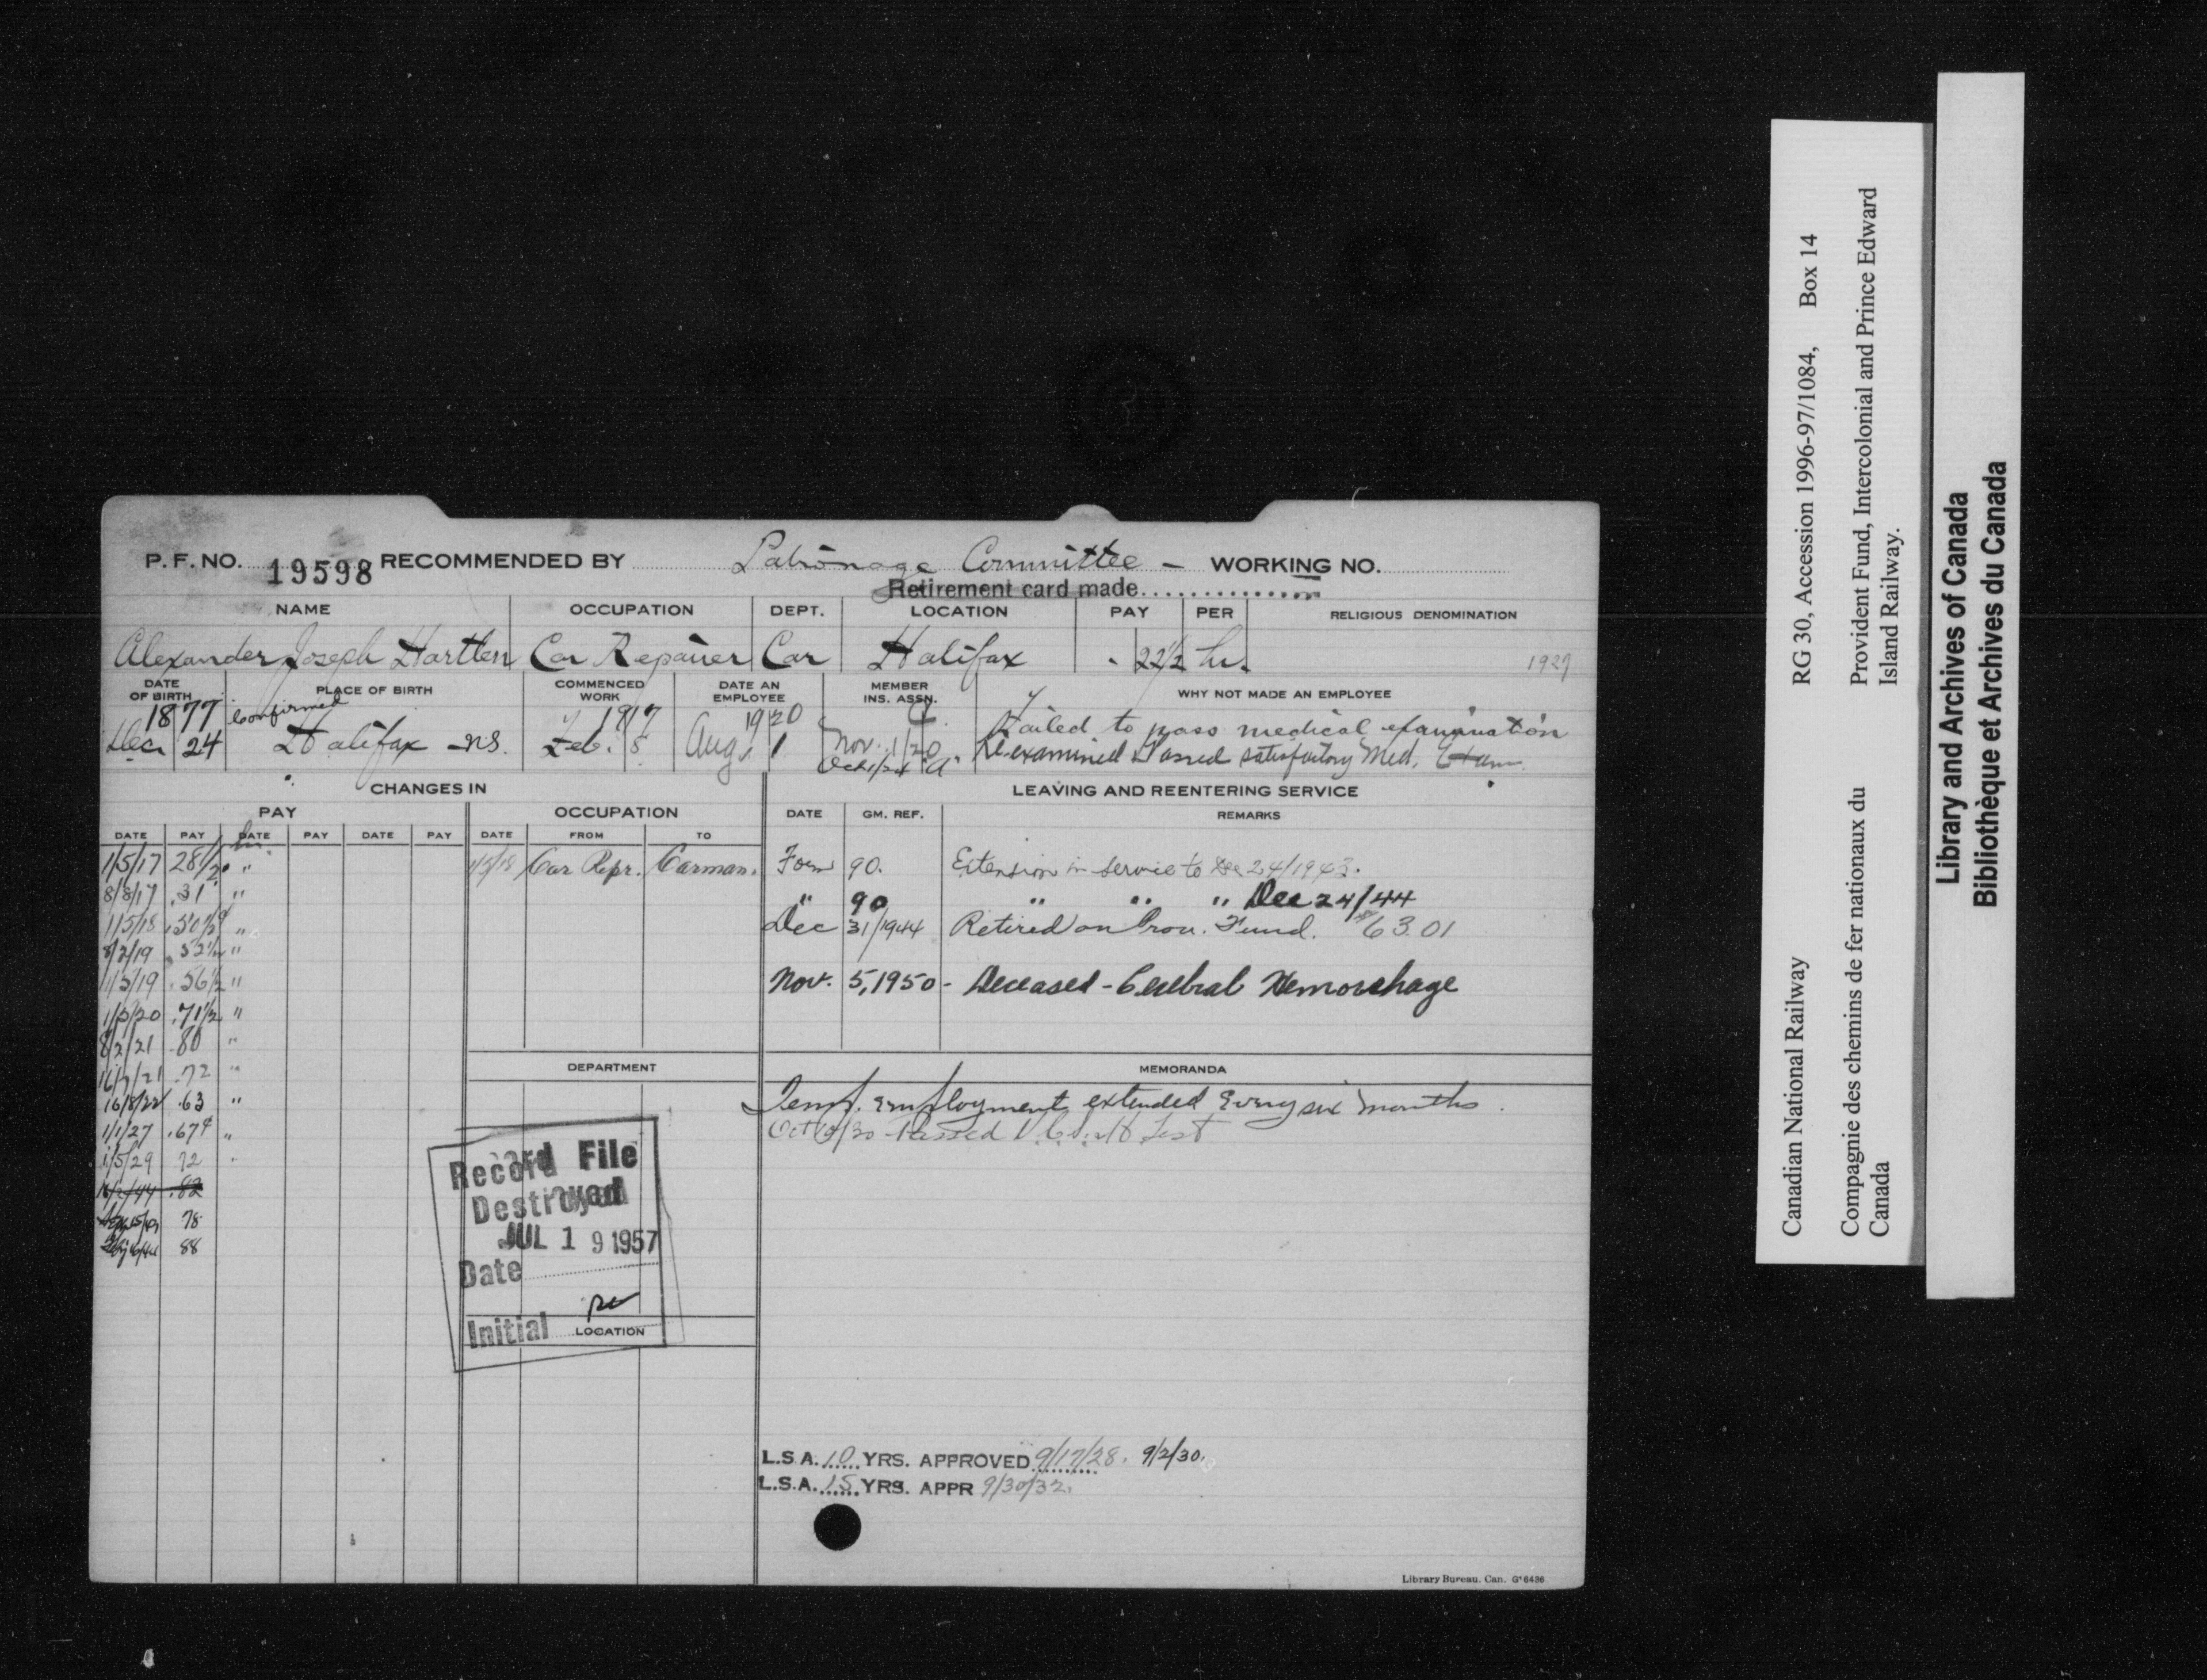 P. F. NO. 19598 RECOMMENDED BY Patronage Committee - WORKING NO.
Retirement card made
NAME OCCUPATION DEPT. LOCATION PAY PER RELIGIOUS DENOMINATION
Alexander Joseph Hartlen Car Repairer Car Halifax . 22½ hr. 1927
DATE OF BIRTH PLACE OF BIRTH COMMENCED WORK DATE AN EMPLOYEE MEMBER INS. ASSN. WHY NOT MADE AN EMPLOYEE
1877 Confirmed 1917 1920
Dec. 24 Halifax N.S. Feb. 5 Aug. 1 Nov. 1/20 Failed to pass medical examination
"A" Re-examined Passed satisfactory Med. Exam.
CHANGES IN LEAVING AND REENTERING SERVICE
PAY OCCUPATION DATE GM. REF. REMARKS
DATE PAY DATE PAY DATE PAY DATE FROM TO
hr.
1/5/17 28½ " 1/5/18 Car Repr. Carman. Form 90. Extension in service to Dec 24/1943.
8/8/17 .31 " " 90 " " " Dec 24/44
1/5/18 .50½ " Dec 31/1944 Retired on Prov. Fund. $63.01
8/2/19 .52½ "
1/5/19 .56½ " Nov. 5, 1950 - Deceased - Cerebral Hemorrhage
1/5/20 .71½ "
8/2/21 .80 "
16/7/21 .72 "
16/8/22 .63 "
1/1/27 .67¢ "
1/5/29 72 "
.82
78
88
DEPARTMENT MEMORANDA
Temp. employment extended every six months.
Passed Test
Record File
Destroyed
JUL 19 1957
Date
Initial
LOCATION
L.S.A. 10 YRS. APPROVED 9/17/28. 9/2/30.
L.S.A. 15 YRS. APPR 9/30/32.
Library Bureau. Can. G'6486
Canadian National Railway RG 30, Accession 1996-97/1084, Box 14
Compagnie des chemins de fer nationaux du Provident Fund, Intercolonial and Prince Edward
Canada Island Railway.
Library and Archives of Canada
Bibliothèque et Archives du Canada